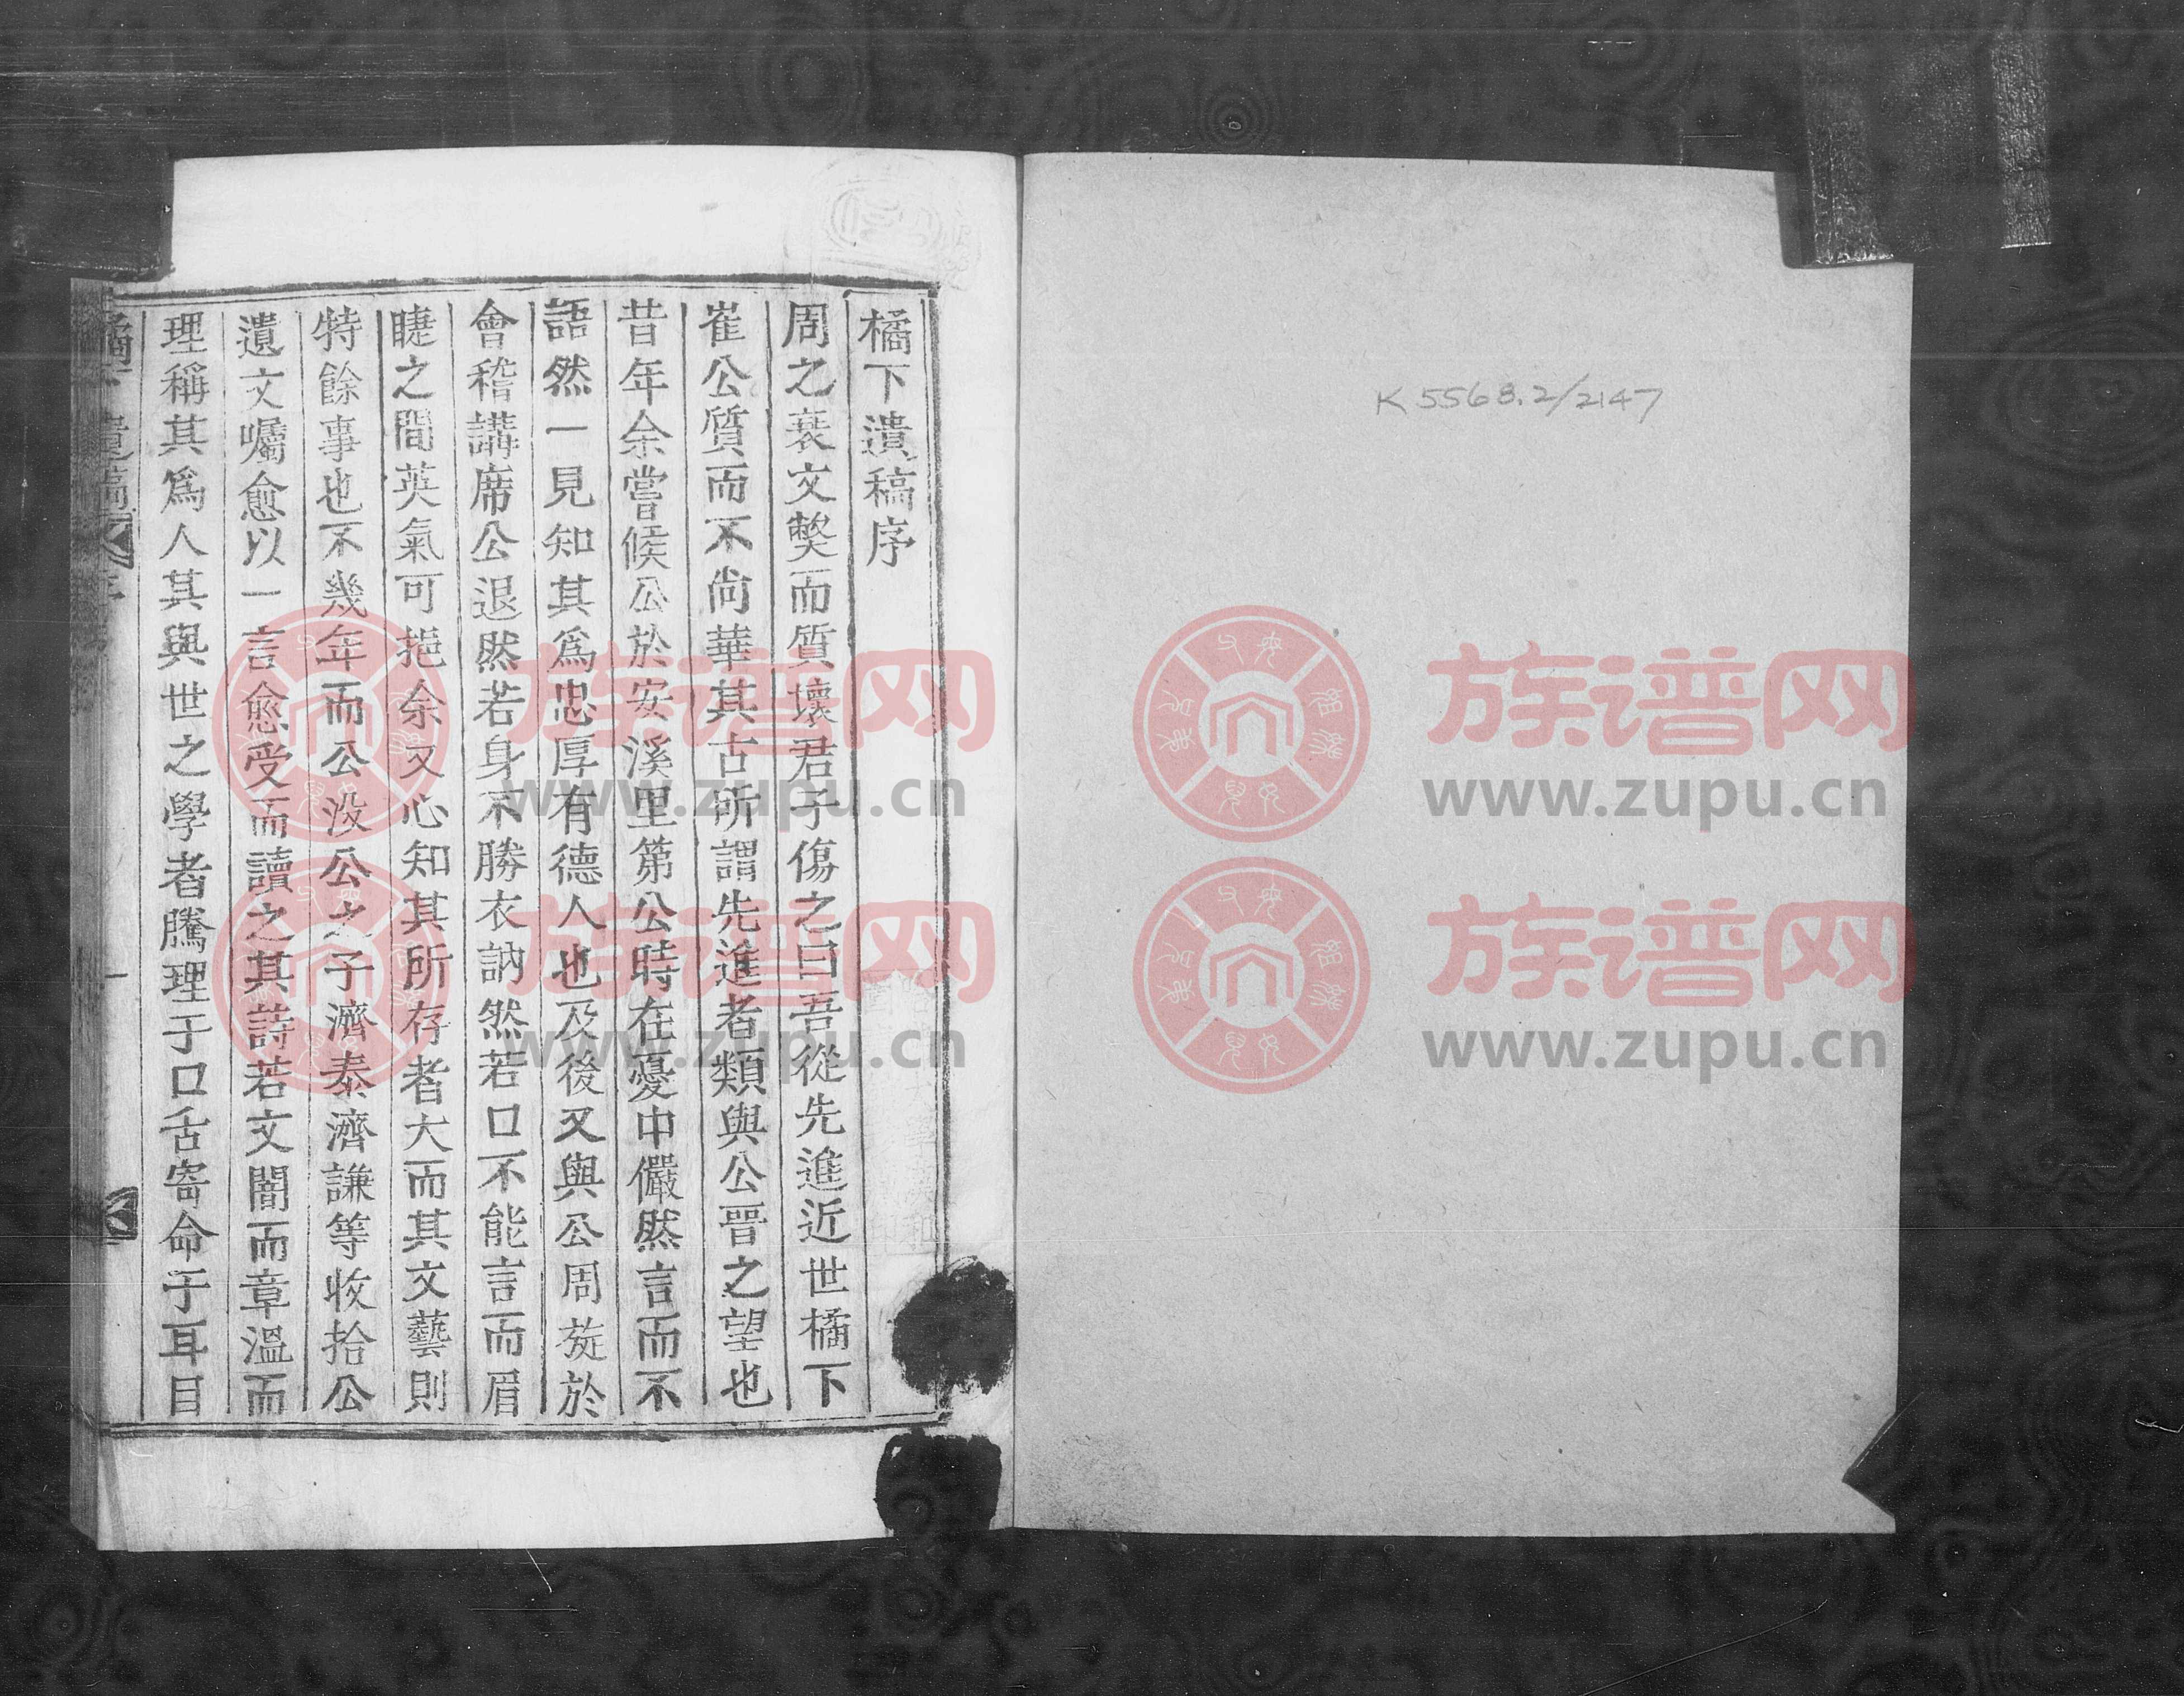 K5568.2/2147
橘下遺稿序
周之衰文弊而質壞君子傷之曰吾從先進近世橘下
崔公質而不尙華其古所謂先進者類與公晋之望也
昔年余嘗候公於安溪里第公時在憂中儼然言而不
語然一見知其爲忠厚有德人也及後又與公周旋於
會稽講席公退然若身不勝衣訥然若口不能言而眉
睫之間英氣可挹余又心知其所存者大而其文藝則
特餘事也不幾年而公没公之子濟泰濟謙等收拾公
遺文囑愈以一言愈受而讀之其詩若文闇而章溫而
理稱其爲人其與世之學者騰理于口舌寄命于耳目
橘下遺稿 序 一
族谱网
www.zupu.cn
族谱网
www.zupu.cn
族谱网
www.zupu.cn
族谱网
www.zupu.cn